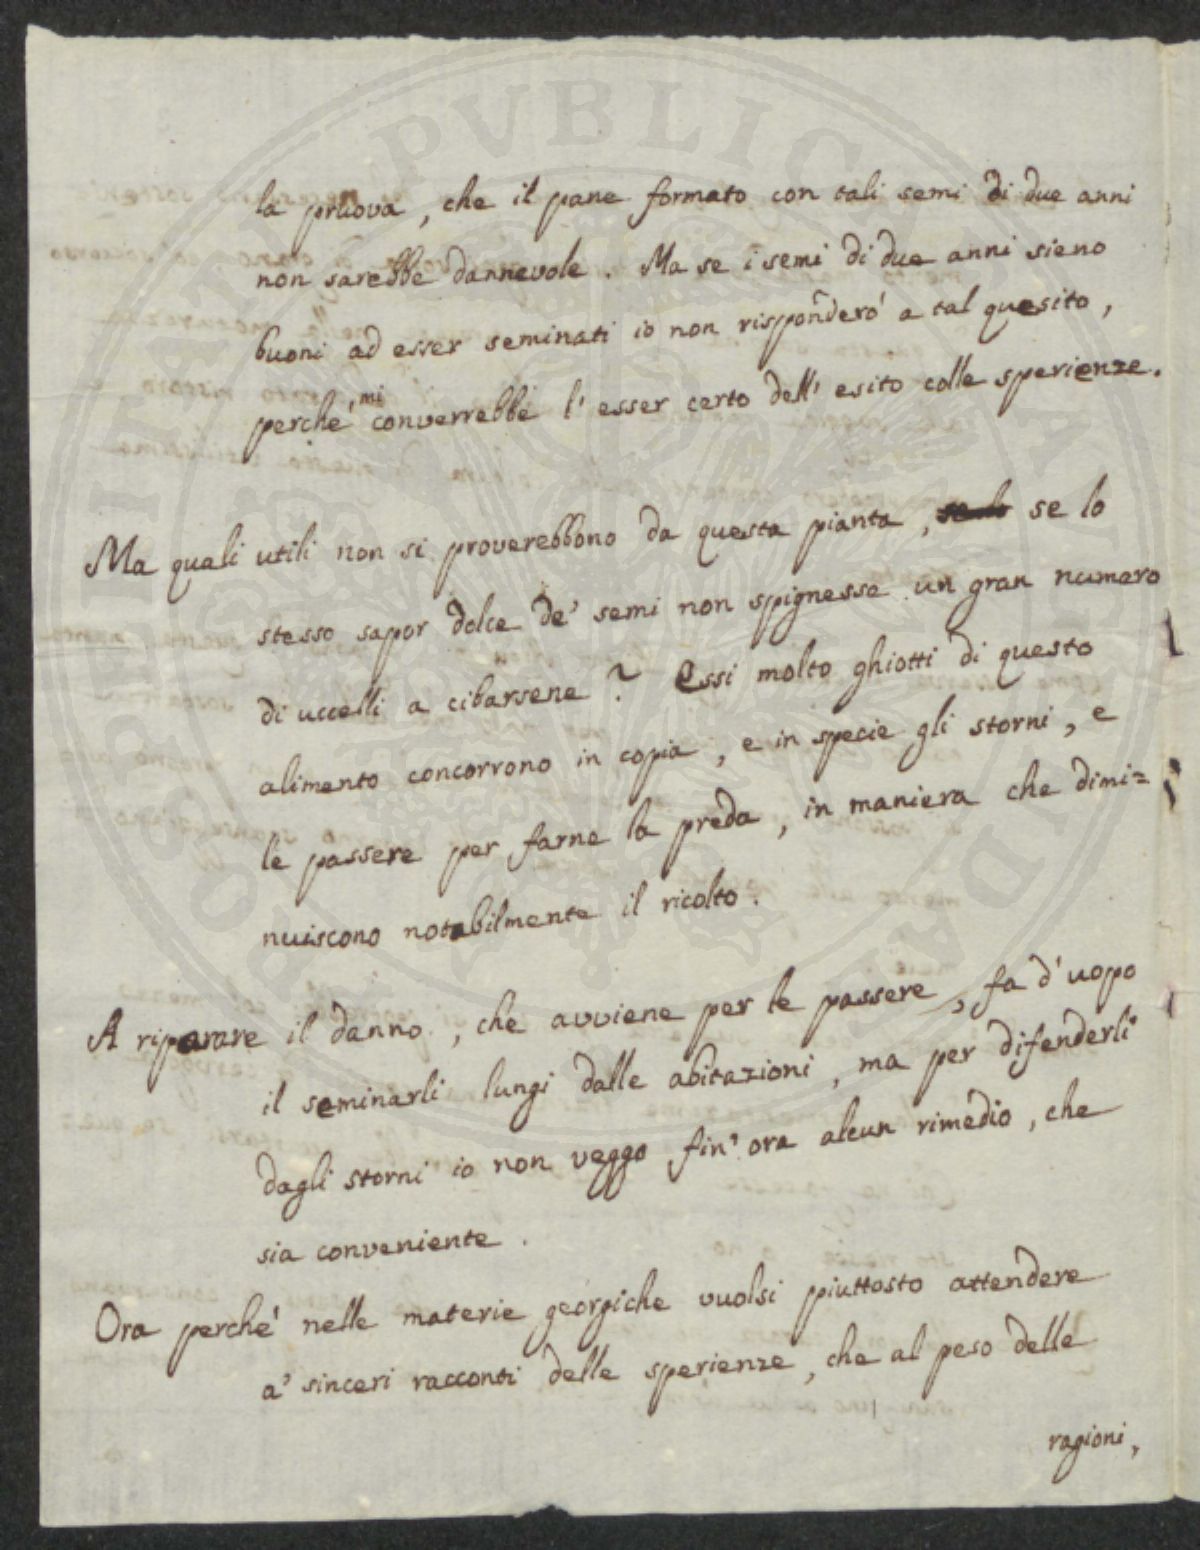 la pruova, che il pane formato con tali semi di due anni
non sarebbe dannevole. Ma se i semi di due anni sieno
buoni ad esser seminati io non risponderó a tal quesito,
perché mi converrebbe l' esser certo dell' esito colle sperienze.
Ma quali utili non si proverebbono da questa pianta, se lo se lo
stesso sapor dolce de' semi non spignesse un gran numero
di uccelli a cibarsene? Essi molto ghiotti di questo
alimento concorrono in copia, e in specie gli storni, e
le passere per farne la preda, in maniera che dimi=
nuiscono notabilmente il ricolto.
A riparare il danno, che avviene per le passere, fa d' uopo
il seminarli lungi dalle abitazioni, ma per difenderli
dagli storni io non veggo fin' ora alcun rimedio, che
sia conveniente.
Ora perché nelle materie georgiche vuolsi piuttosto attendere
a' sinceri racconti delle sperienze, che al peso delle
ragioni,